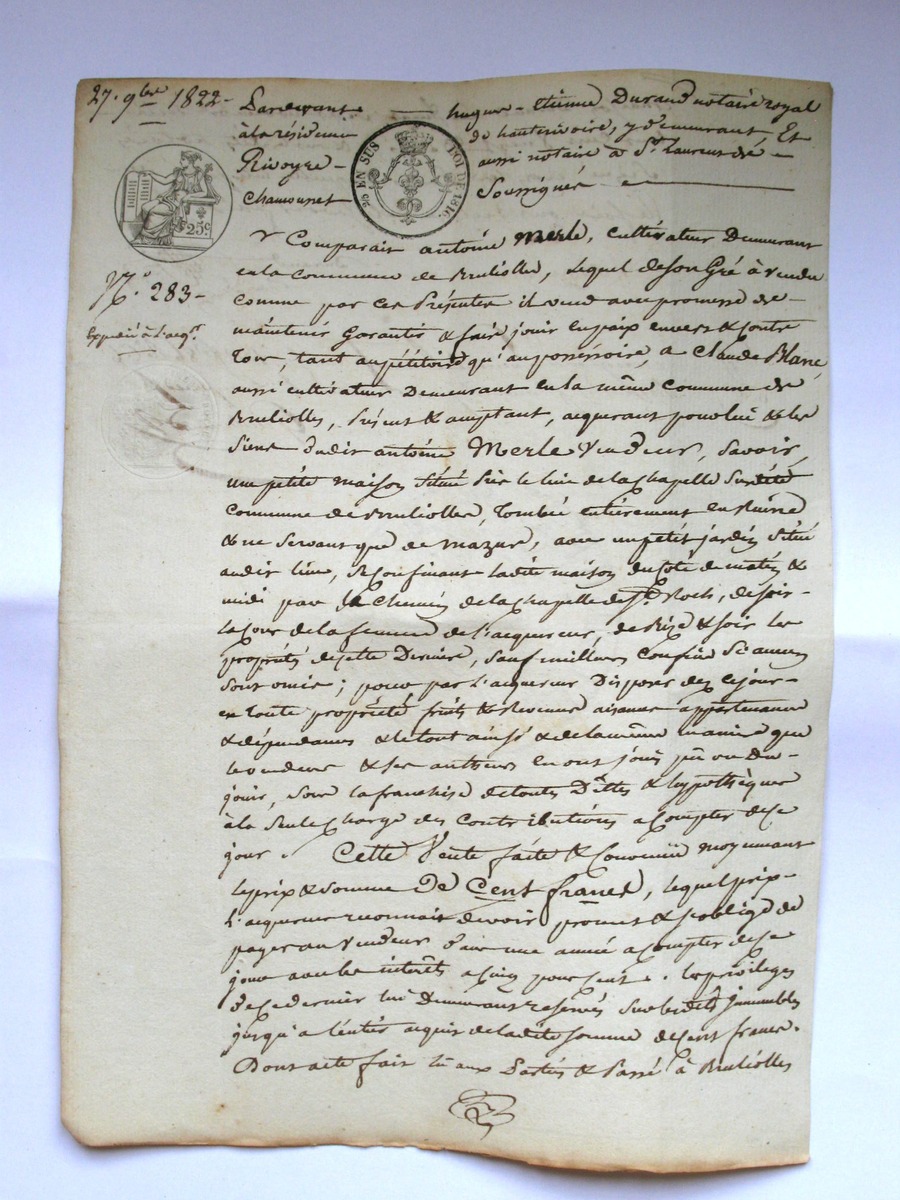 27. 9bre 1822-
Pardevant hugues-etienne Durand notaire royal
à la résidence de hauterivoire, y demeurant Et
Rivoyre- aussi notaire à St. Laurent de-
Chamousset Soussignés
25 EN SUS LOI DE 1816.
25c
N.° 283-
Expédié à l'acqr.
Comparait antoine Merle, Cultivateur Demeurant
en la Commune de Bruliolles, lequel de son Gré à vendu
comme par ces Présentes il vend avec promesse de-
maintenir Garantir & faire jouir en paix envers & contre
Tous, tant au pétitoire qu'au possessoire, a Claude Blanc,
aussi cultivateur Demeurant en la même Commune de
Brulliolles, Présent & acceptant, acquerant pour lui & les
Siens dudit antoine Merle Vendeur, Savoir,
une petite maison Située Sur le lieu de la Chapelle Susdite
Commune de Brulliolles, Tombée entièrement en Ruine
& ne Servant que de mazure, avec un petit jardin Situé
audit lieu, Se Confinant ladite maison du coté de matin &
midi par le Chemin de la Chapelle de St. Roch, de soir
la Cour de la femme de l'acquereur, de Bize & soir les
propriétés de cette Dernière, Sauf meilleurs confins Si aucuns
Sont omis; pour par l'acquereur Disposer dez ce jour-
en toute propriété fruits & Revenus aisances appartenances
& dépendances & le tout ainsi & de la même manière que
le vendeur & Ses autheurs en ont joui pû ou Du-
jouir, Sous la franchise de toutes Dettes & hypothèques
à la Seule Charge des Contributions a Compter de ce
jour. Cette Vente faite & Convenüe moyennant
le prix & Somme De Cent francs, lequel prix-
L'acquereur reconnait devoir promet & s'oblige de
payer au Vendeur Dans une année a Compter de ce
jour avec les intérêts a cinq pour Cent. les privileges
de ce dernier lui Demeurant reservés Sur lesdits jmmeubles
jusqu'a l'entier acquit de ladite Somme de Cent francs.
Dont acte fait lu aux Parties & Passé à Brulliolles